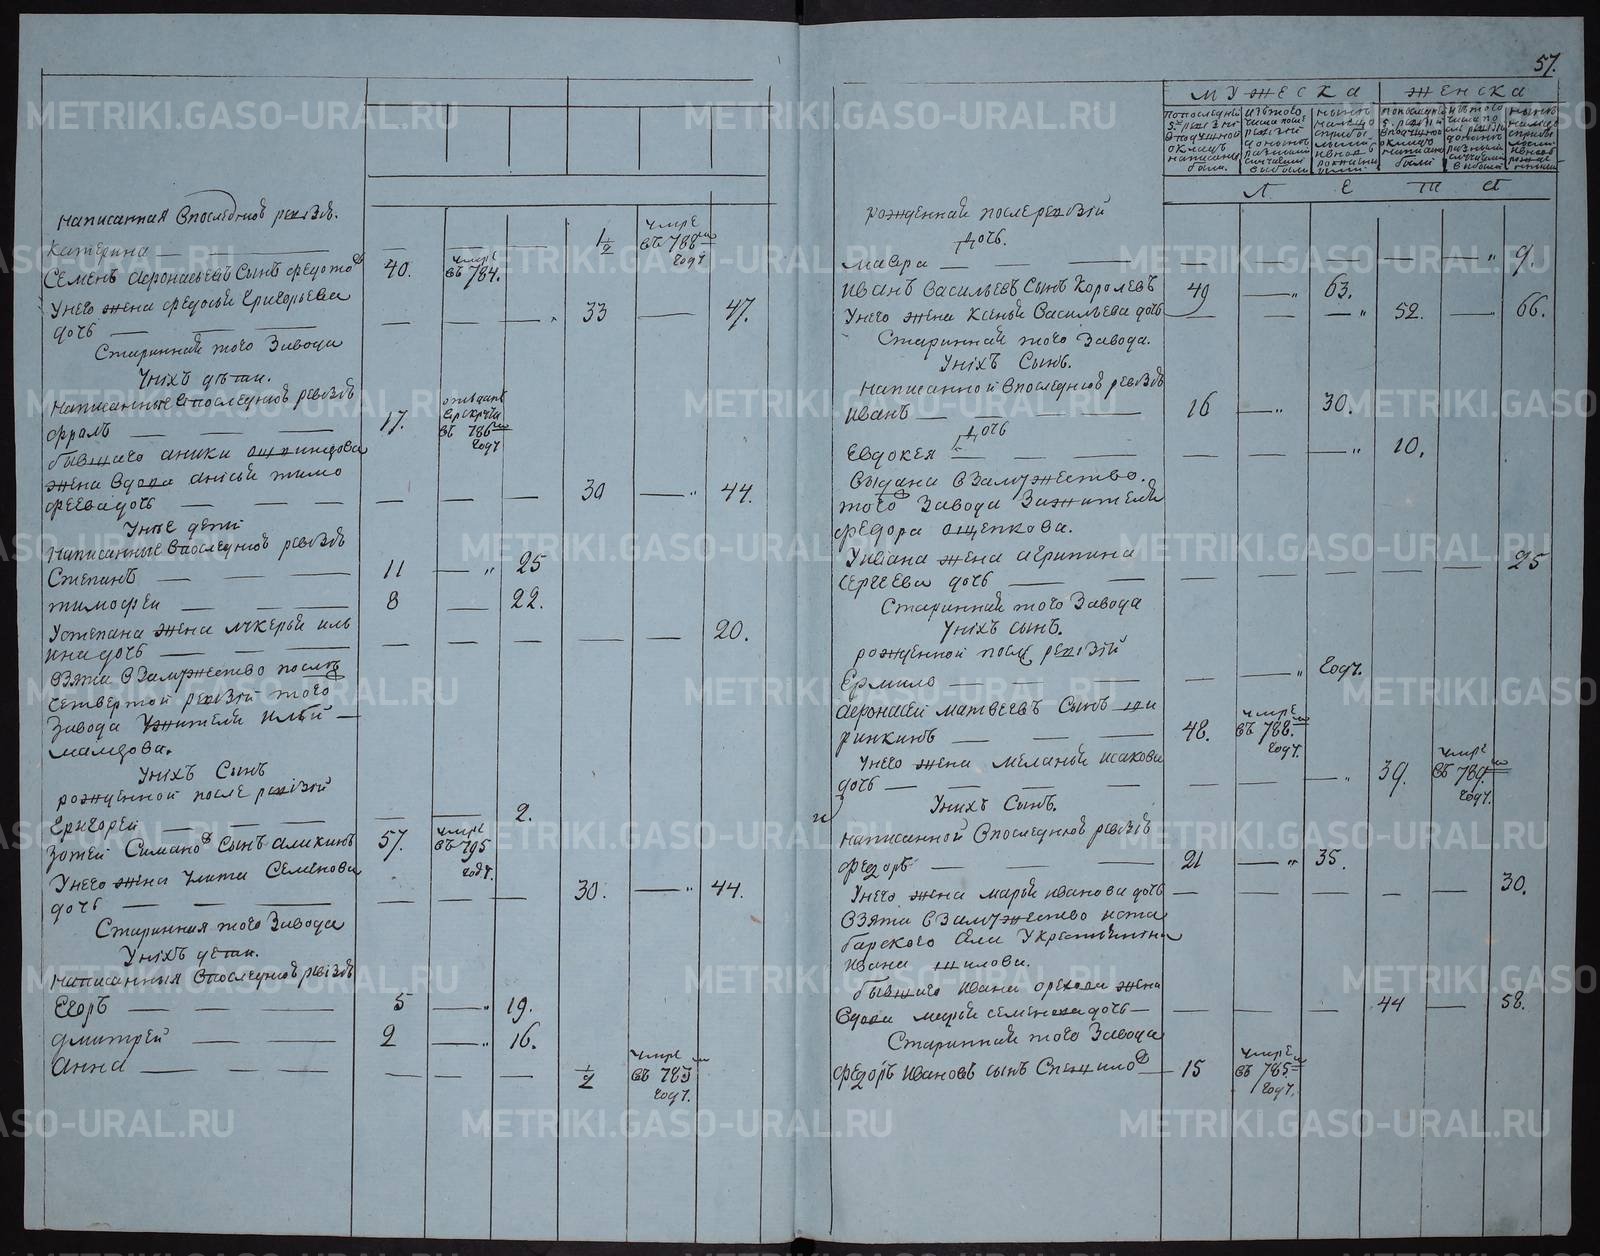 написанная впоследнюю ревизию.
катерина — 1/2 умре въ 788м году
Семенъ Афонасьевъ Сынъ федотов 40. умре въ 784.
Унего жена федосья Григорьева
дочь — 33 — 47.
Стариннай того Завода
Унихъ дети.
написанные впоследнюю ревизию
17. отъданъ врекруты въ 786м году
бывшего аники
жена вдова анисья тимо
феевадочь — 30 — 44.
Унее дети
написанные впоследнюю ревизию
Степанъ — 11 — 25
тимофеи — 8 — 22.
Устепана жена лукерья иль
инадочь — 20.
взята взамужество после
четвертой ревизии того
завода ужителя ильи
мамдова.
Унихъ Сынъ
рожденной после ревизии
Григореи — 2.
зотей Симанов Сынъ аликинъ 57. умре въ 795 году
Унего жена улита Семенова
дочь — 30. — 44.
Старинная того Завода
Унихъ дети.
написанныя впоследнюю ревизию
Егоръ — 5 — 19.
дмитрей — 2 — 16.
Анна — 1/2 умре въ 783м году.
57.
мужеска женска
попоследней 5й ревизии вподушной окладъ написаны были.
изътого числа после ревизии
лета
рожденная послеревизии
дочь.
мавра — 9.
иванъ васильевъ Сынъ Королевъ 49 — 63.
Унего жена ксенья Васильева дочь — 52. — 66.
Стариннай того Завода.
Унихъ Сынъ.
написанной впоследнюю ревизию
иванъ — 16 — 30.
дочь
Евдокея — 10.
выдана взамужество.
того Завода Зажителя
федора ощепкова.
Уивана жена агрипина
Сергеева дочь — 25
Стариннай того Завода
Унихъ сынъ.
рожденной после ревизии
Ермило — году.
афонасеи матвеевъ Сынъ ши
ринкинъ — 48. умре въ 788.м году.
Унего жена меланья исакова
дочь — 39. умре въ 789.м году.
Унихъ Сынъ.
написанной впоследнюю ревизию
федоръ — 21 — 35.
Унего жена марья иванова дочь — 30.
взята взамужество иста
барского села Укрестьянина
ивана шилова.
бывшего ивана орехова жена
вдова марья семеновадочь — 44 — 58.
Стариннай того Завода
федоръ ивановъ сынъ — 15 умре въ 785м году.